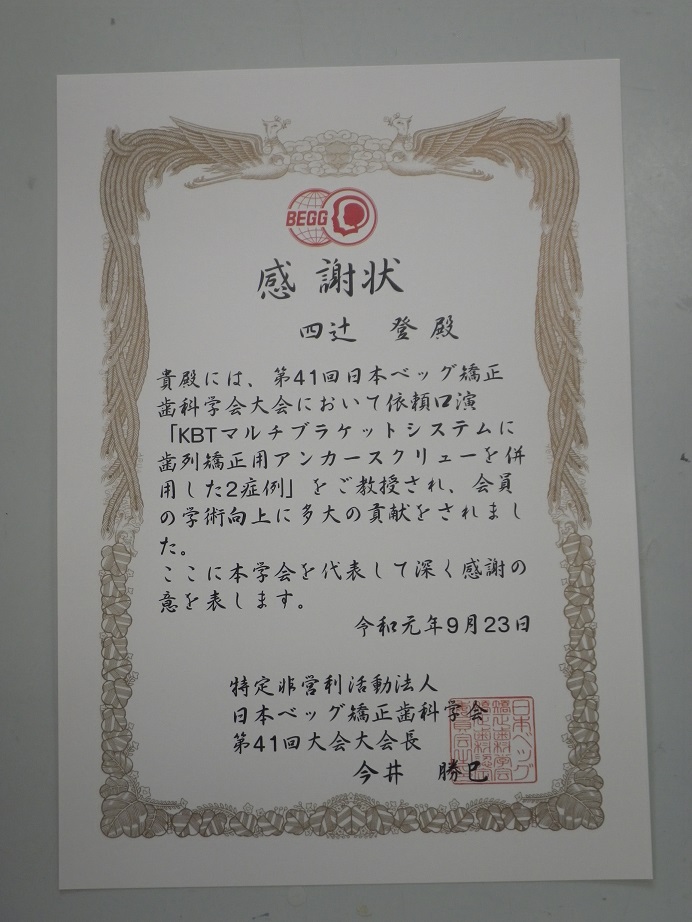 BEGG
感謝状
四辻 登 殿
貴殿には、第41回日本ベッグ矯正
歯科学会大会において依頼口演
「KBTマルチブラケットシステムに
歯列矯正用アンカースクリューを併
用した2症例」をご教授され、会員
の学術向上に多大の貢献をされまし
た。
ここに本学会を代表して深く感謝の
意を表します。
令和元年9月23日
特定非営利活動法人
日本ベッグ矯正歯科学会
第41回大会大会長
今井 勝巳
日本ベッグ
矯正歯科学会